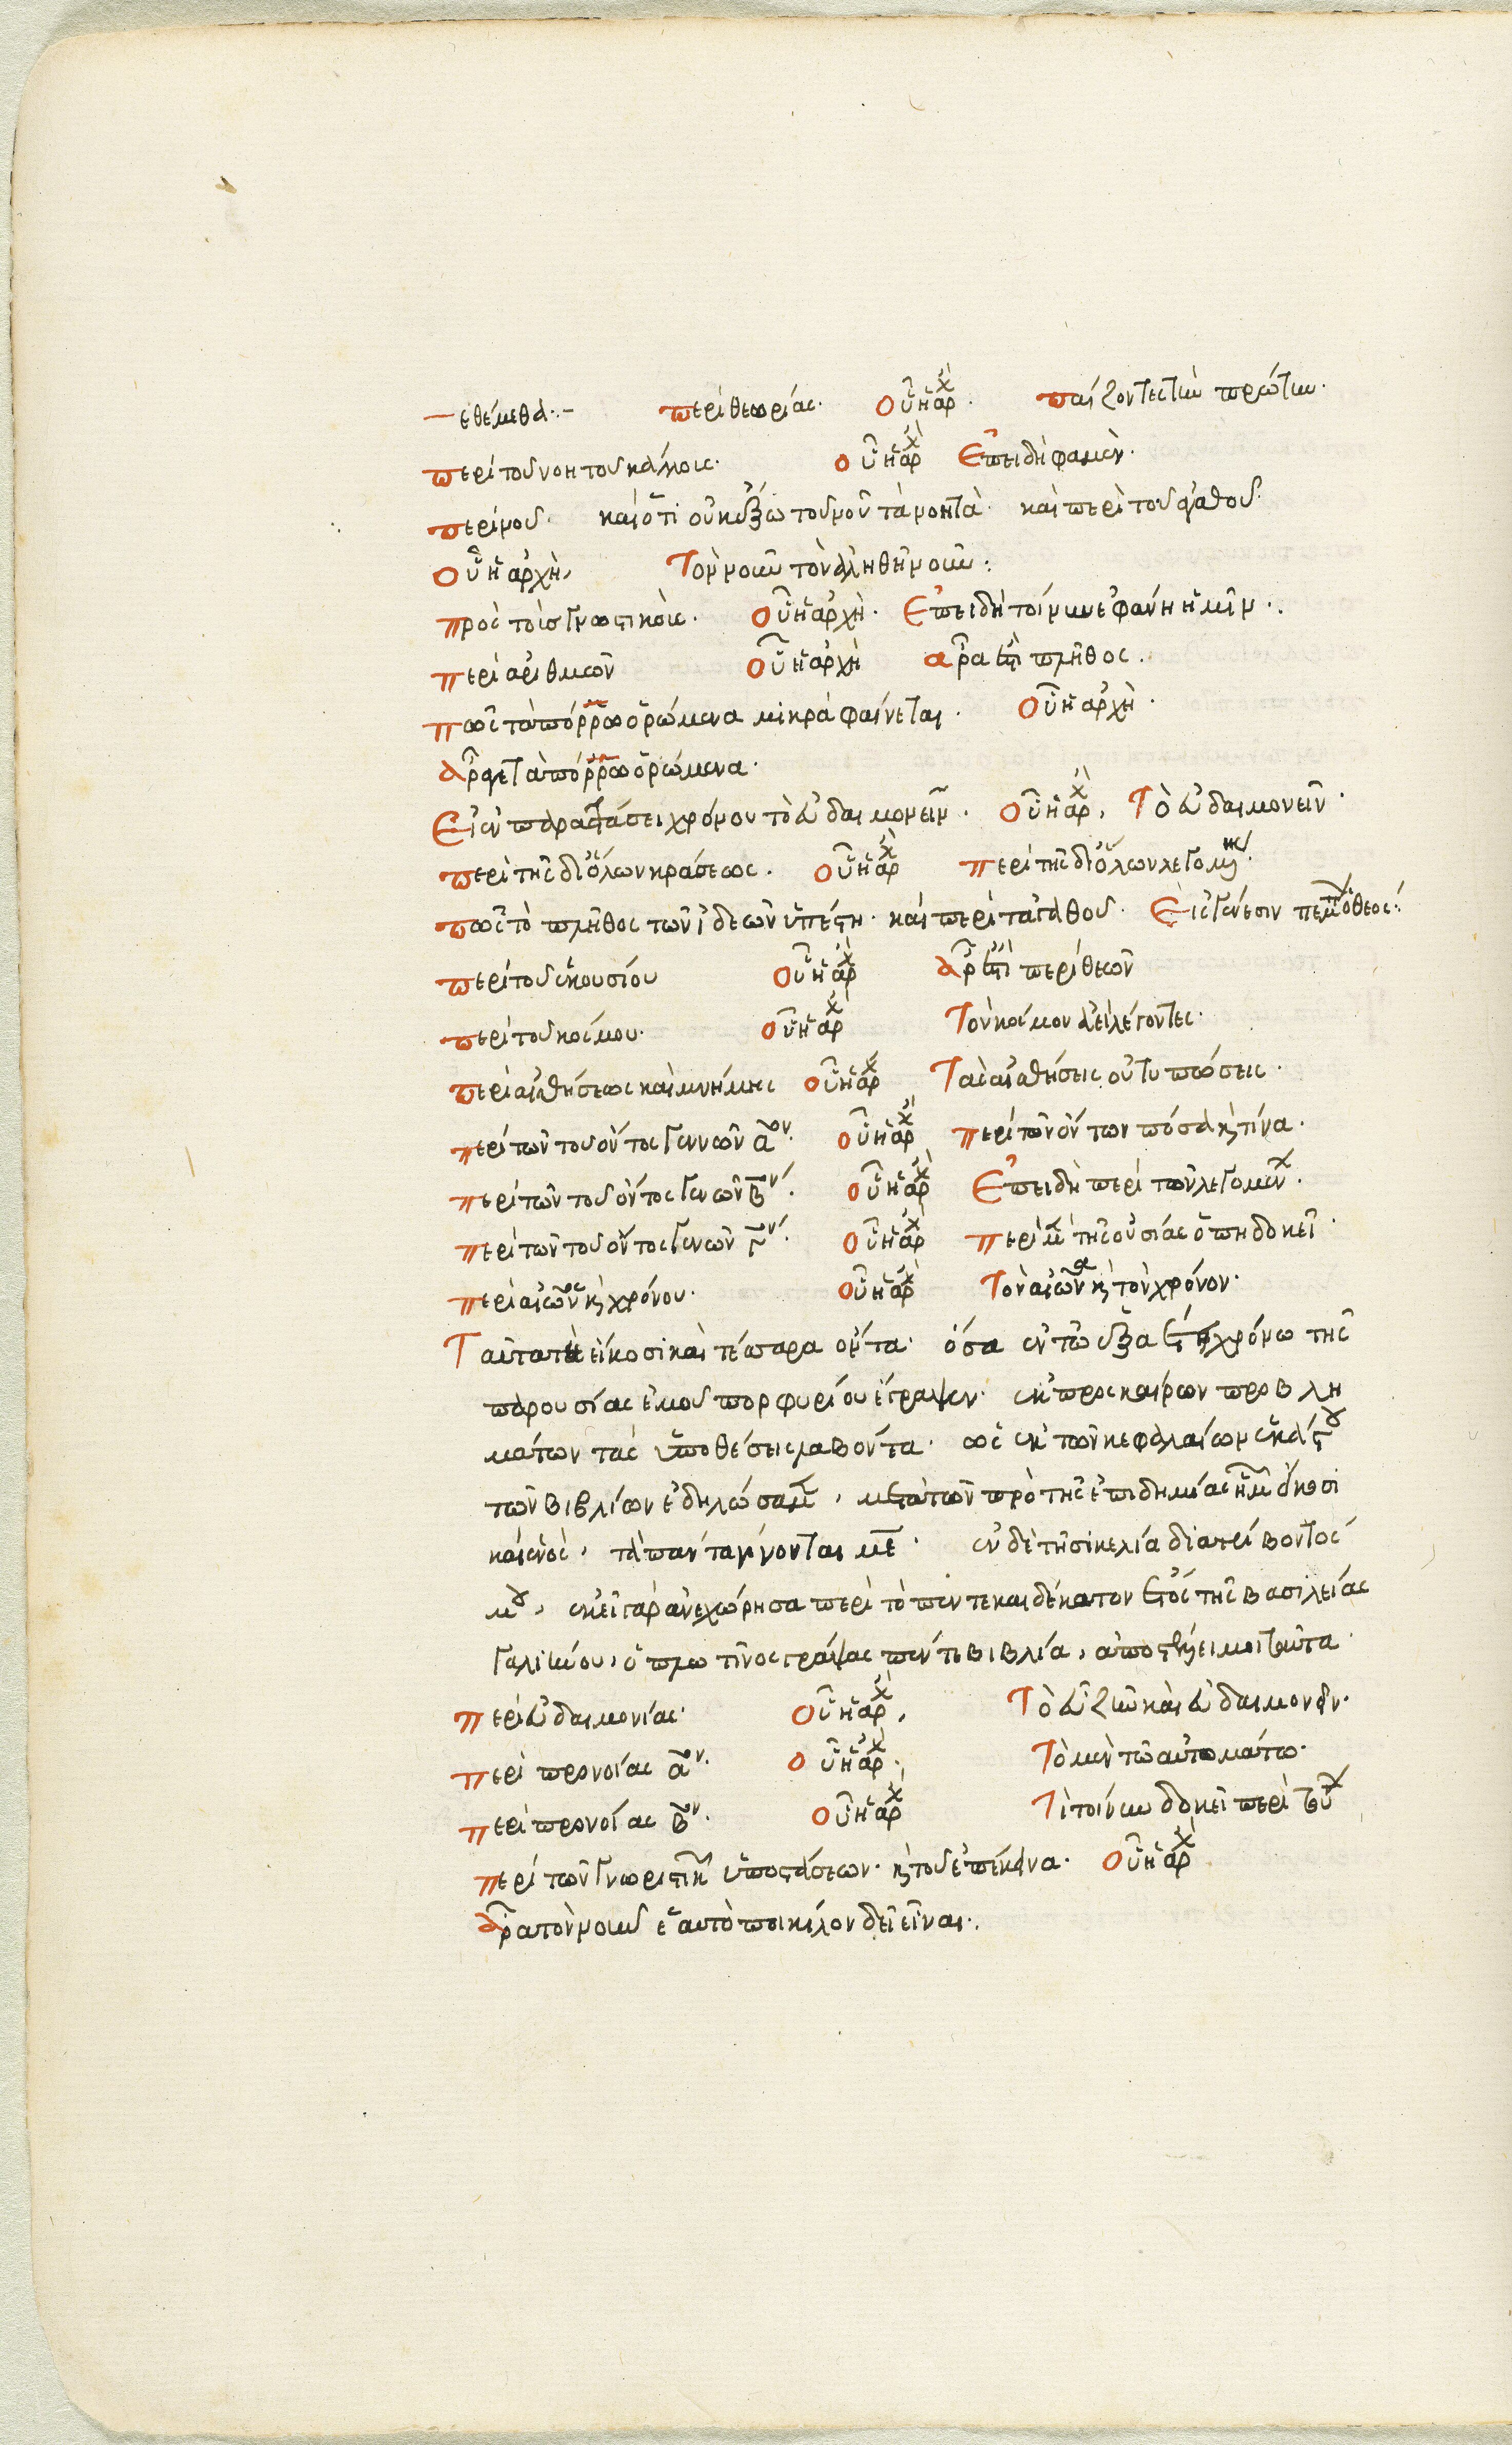 εθέμεθα·— περὶ θεωρίας· οὗ ἡ ἀρχ· παίζοντες τὴν πρώτην·
περὶ τοῦ νοητοῦ κάλλους· οὗ ἡ ἀρχ Ἐπειδή φαμεν·
περὶ νοῦ· καὶ ὅτι οὐκ ἔξω τοῦ νοῦ τὰ νοητὰ· καὶ περὶ τοῦ ἀγαθοῦ·
οὗ ἡ ἀρχὴ, Τὸν νοῦν τὸν ἀληθῆ νοῦν:
πρὸς τοὺς γνωστικούς· οὗ ἡ ἀρχὴ· Ἐπειδὴ τοίνυν ἐφάνη ἡμῖν·.
περὶ ἀριθμῶν οὗ ἡ ἀρχὴ ἆρά ἐστι πλῆθος.
πῶς τὰ πόρρω ὁρώμενα μικρὰ φαίνεται· οὗ ἡ ἀρχὴ·
ἆρά γε τὰ πόρρω ὁρώμενα·
Εἰ ἐν παρατάσει χρόνου τὸ εὐδαιμονεῖν· οὗ ἡ ἀρχ, Τὸ εὐδαιμονεῖν·
περὶ τῆς δι' ὅλων κράσεως. οὗ ἡ ἀρχ περὶ τῆς δι' ὅλων λεγομένης·
πῶς τὸ πλῆθος τῶν ἰδεῶν ὑπέστη· καὶ περὶ τἀγαθοῦ· Εἰς γένεσιν πέμπων ὁ θεός:
περὶ τοῦ ἑκουσίου οὗ ἡ ἀρχ ἆρ' ἔστι περὶ θεῶν
περὶ τοῦ κόσμου· οὗ ἡ ἀρχ Τὸν κόσμον ἀεὶ λέγοντες·
περὶ αἰσθήσεως καὶ μνήμης οὗ ἡ ἀρχ Τὰς αἰσθήσεις οὐ τυπώσεις·
περὶ τῶν τοῦ ὄντος γεννῶν αον· οὗ ἡ ἀρχ περὶ τῶν ὄντων πόσα καὶ τίνα·
περὶ τῶν τοῦ ὄντος γενῶν βον· οὗ ἡ ἀρχ Ἐπειδὴ περὶ τῶν λεγομένων·
περὶ τῶν τοῦ ὄντος γενῶν γον· οὗ ἡ ἀρχ περὶ μὲν τῆς οὐσίας ὅπη δοκεῖ·
περὶ αἰῶνος καὶ χρόνου· οὗ ἡ ἀρχ Τὸν αἰῶνα καὶ τὸν χρόνον·
Ταῦτα τὰ εἴκοσι καὶ τέσσαρα ὄντα· ὅσα ἐν τῷ ἑξαέτει χρόνω τῆς
παρουσίας ἐμοῦ πορφυρίου ἔγραψεν· ἐκ προσκαίρων προβλη
μάτων τὰς ὑποθέσεις λαβόντα· ὡς ἐκ τῶν κεφαλαίων ἑκάστου
τῶν βιβλίων ἐδηλώσαμεν, μετὰ τῶν πρὸ τῆς ἐπιδημίας ἡμῶν εἴκοσι
καὶ ἑνὸς, τὰ πάντα γίνονται με· ἐν δὲ τῆ σικελία διατρίβοντός
μου, ἐκεῖ γὰρ ἀνεχώρησα περὶ τὸ πεντεκαιδέκατον ἔτος τῆς βασιλείας
γαλιήνου, ὁ πλωτῖνος γράψας πέντε βιβλία, ἀποστέλλει μοι ταῦτα·
περὶ εὐδαιμονίας· οὗ ἡ ἀρχ, Τὸ εὖ ζῆν καὶ εὐδαιμονεῖν·
περὶ προνοίας αον· οὗ ἡ ἀρχ· Τὸ μὲν τῶ αὐτομάτω·
περὶ προνοίας βον· οὗ ἡ ἀρχ Τί τοίνυν δοκεῖ περὶ τούτων
περὶ τῶν γνωριστικῶν ὑποστάσεων· καὶ τοῦ ἐπέκεινα· οὗ ἡ ἀρχ
ἆρα τὸ νοοῦν ἑαυτὸ ποικίλον δεῖ εἶναι·.